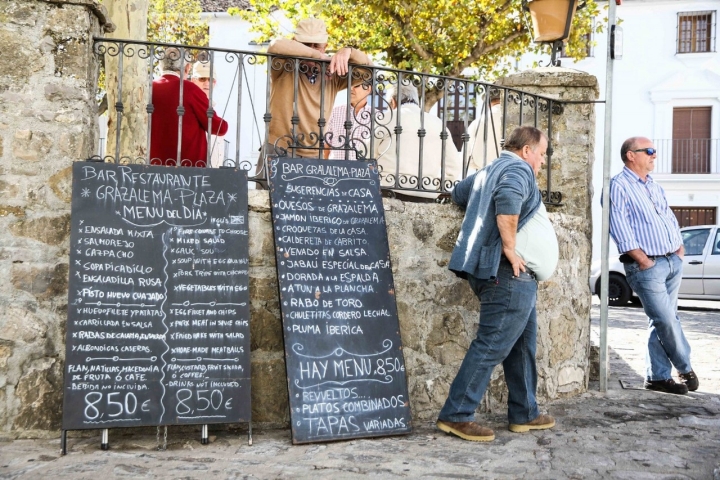 BAR RESTAURANTE
*GRAZALEMA-PLAZA*
MENU DEL DIA
ENSALADA MIXTA
SALMOREJO
GAZPACHO
SOPA PICADILLO
ENSALADILLA RUSA
PISTO HUEVO CUAJADO
HUEVO FLOR Y PATATA
CARRILLADA EN SALSA
ALBONDIGAS CASERAS
FLAN, NATILLAS, MACEDONIA
DE FRUTA Ó CAFE
BEBIDA NO INCLUIDA
8,50€
COURSE TO CHOOSE
MIXED SALAD
SOUP WITH EGG AND HAM
VEGETABLES WITH EGG
PORK MEAT IN SAUCE
HOME-MADE MEATBALLS
FLAN, CUSTARD, FRUIT
OR COFFEE
DRINKS NOT INCLUDED
8,50€
BAR GRAZALEMA PLAZA
SUGERENCIAS DE CASA
QUESOS DE GRAZALEMA
JAMON IBERICO DE GRAZALEMA
CROQUETAS DE LA CASA
CALDERETA DE CABRITO
VENADO EN SALSA
JABALÍ ESPECIAL DE CASA
DORADA A LA ESPALDA
ATUN A LA PLANCHA
RABO DE TORO
CHULETITAS CORDERO LECHAL
PLUMA IBERICA
HAY MENU 8,50€
REVUELTOS
PLATOS COMBINADOS
TAPAS VARIADAS